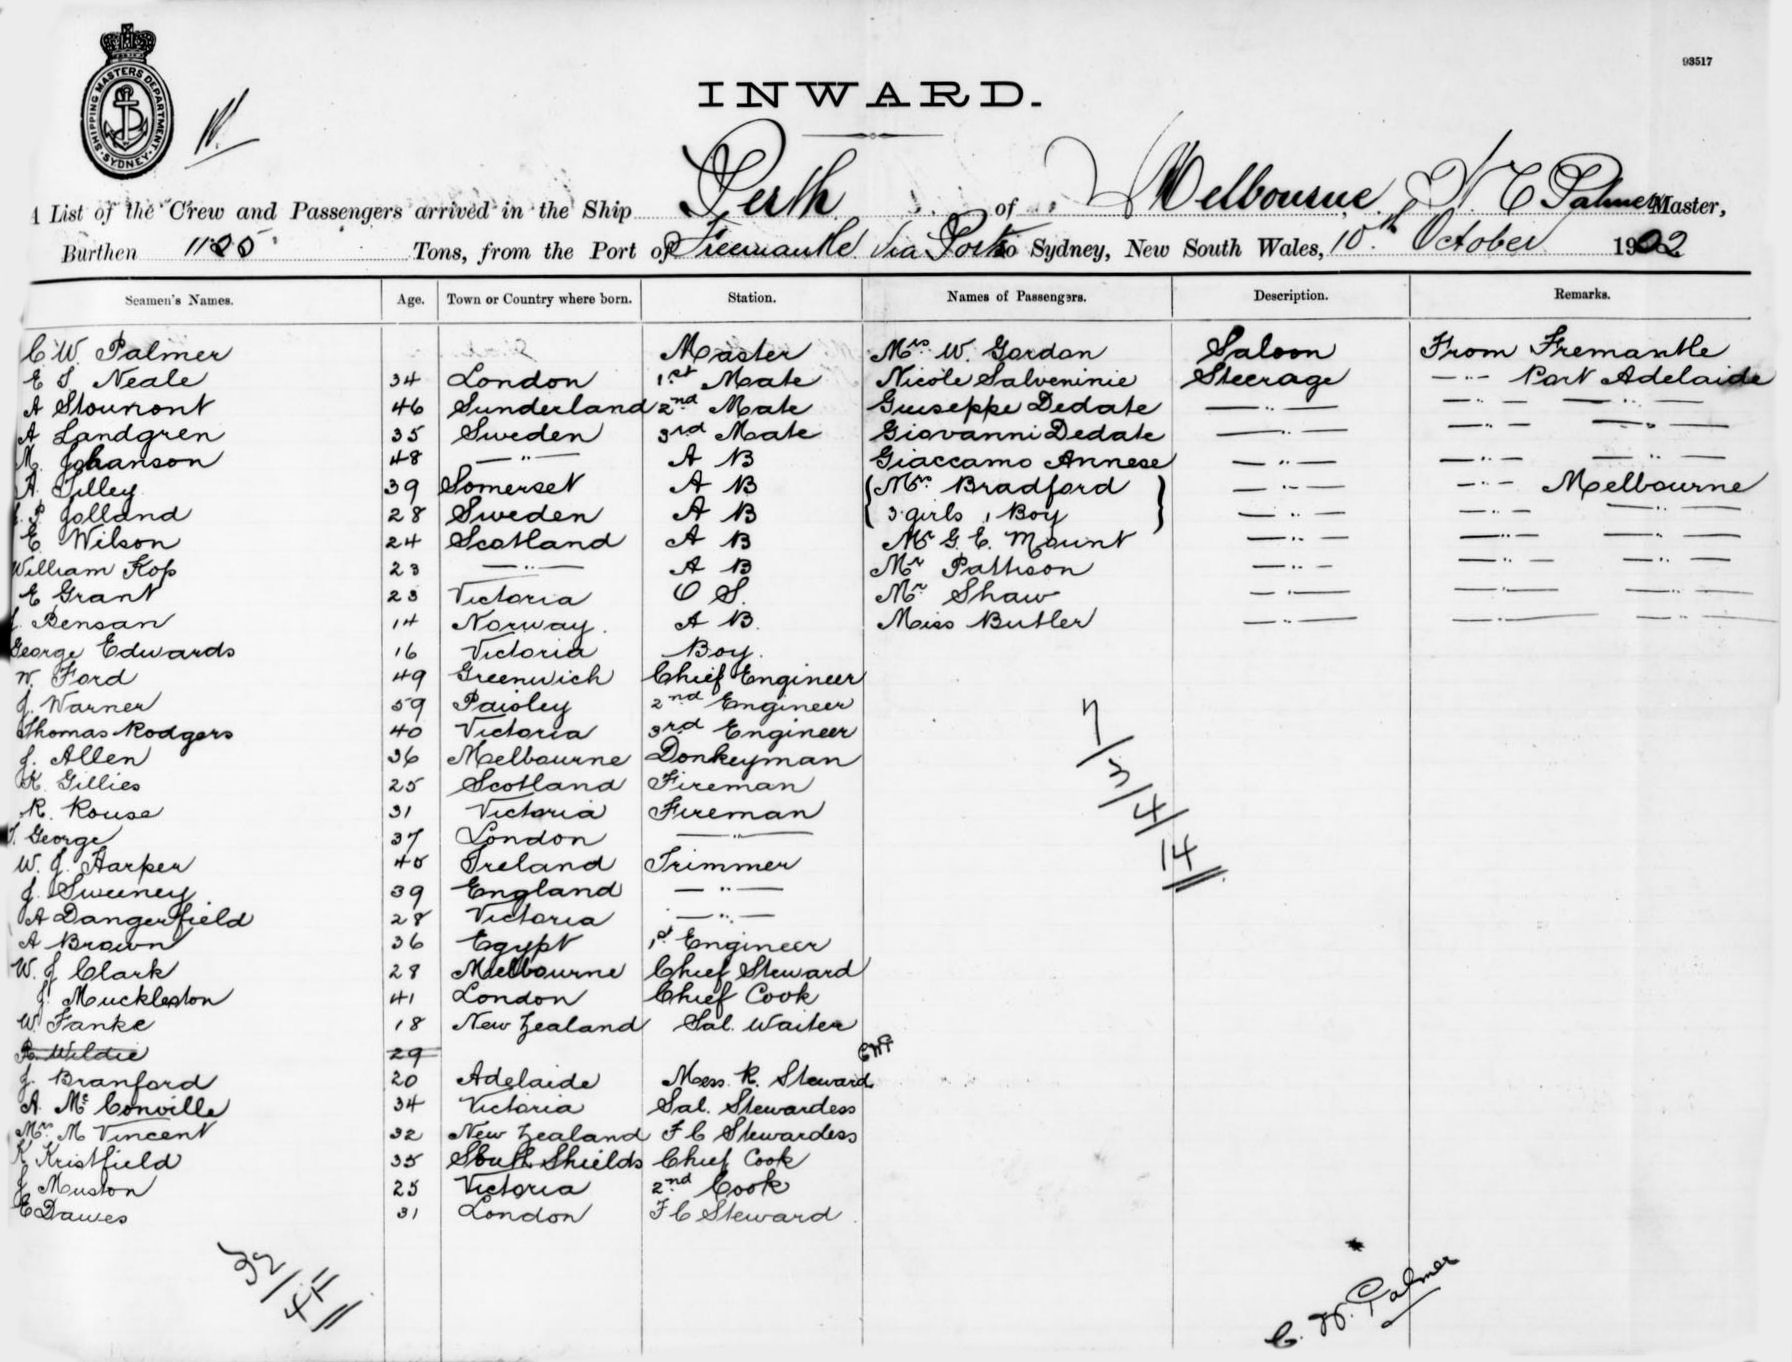 93517
SHIPPING MASTERS DEPARTMENT
SYDNEY
INWARD.
A List of the Crew and Passengers arrived in the Ship Perth of Melbourne Palmer Master,
Burthen Tons, from the Port of Freemantle Via Ports to Sydney, New South Wales, 10th October 1902
Seamen's Names. Age. Town or Country where born. Station. Names of Passengers. Description. Remarks.
C W. Palmer Master Mrs W. Gordon Saloon From Fremantle
E S Neale 34 London 1st Mate Nicole Salveninie Steerage —"— Port Adelaide
A Stourmont 46 Sunderland 2nd Mate Guiseppe Dedate —"— —"— —"—
A Landgren 35 Sweden 3rd Mate Giovanni Dedate —"— —"— —"—
M. Johanson 48 —"— A B Giaccamo Annese —"— —"— —"—
A. Tilley 39 Somerset A B Mrs Bradford —"— —"— Melbourne
Jolland 28 Sweden A B 3 girls 1 Boy —"— —"— —"—
E Wilson 24 Scotland A B Mr G. E. Mount —"— —"— —"—
William Kop 23 —"— A B Mr Pattison —"— —"— —"—
E Grant 23 Victoria O S. Mr Shaw —"— —"— —"—
J. Bensan 14 Norway. A B. Miss Butler —"— —"— —"—
George Edwards 16 Victoria Boy.
W. Ford 49 Greenwich Chief Engineer
J. Warner 59 Paisley 2nd Engineer
Thomas Rodgers 40 Victoria 3rd Engineer
J. Allen 36 Melbourne Donkeyman
K. Gillies 25 Scotland Fireman
R. Rouse 31 Victoria Fireman
T. George 37 London —"—
W. J. Harper 40 Ireland Trimmer
J. Sweeney 39 England —"—
A Dangerfield 28 Victoria —"—
A Brown 36 Egypt 1st Engineer
W. J Clark 28 Melbourne Chief Steward
J. Muckleston 41 London Chief Cook
W. Fanke 18 New Zealand Sal. Waiter
R. Wildie 29
J. Branford 20 Adelaide Mess. R. Steward
A. Mc Conville 34 Victoria Sal. Stewardess
Mrs M Vincent 32 New Zealand F C Stewardess
K Kristfield 35 South Shields Chief Cook
J Muston 25 Victoria 2nd Cook
E Dawes 31 London F C Steward
7/3/4/14
32/
C. W. Palmer